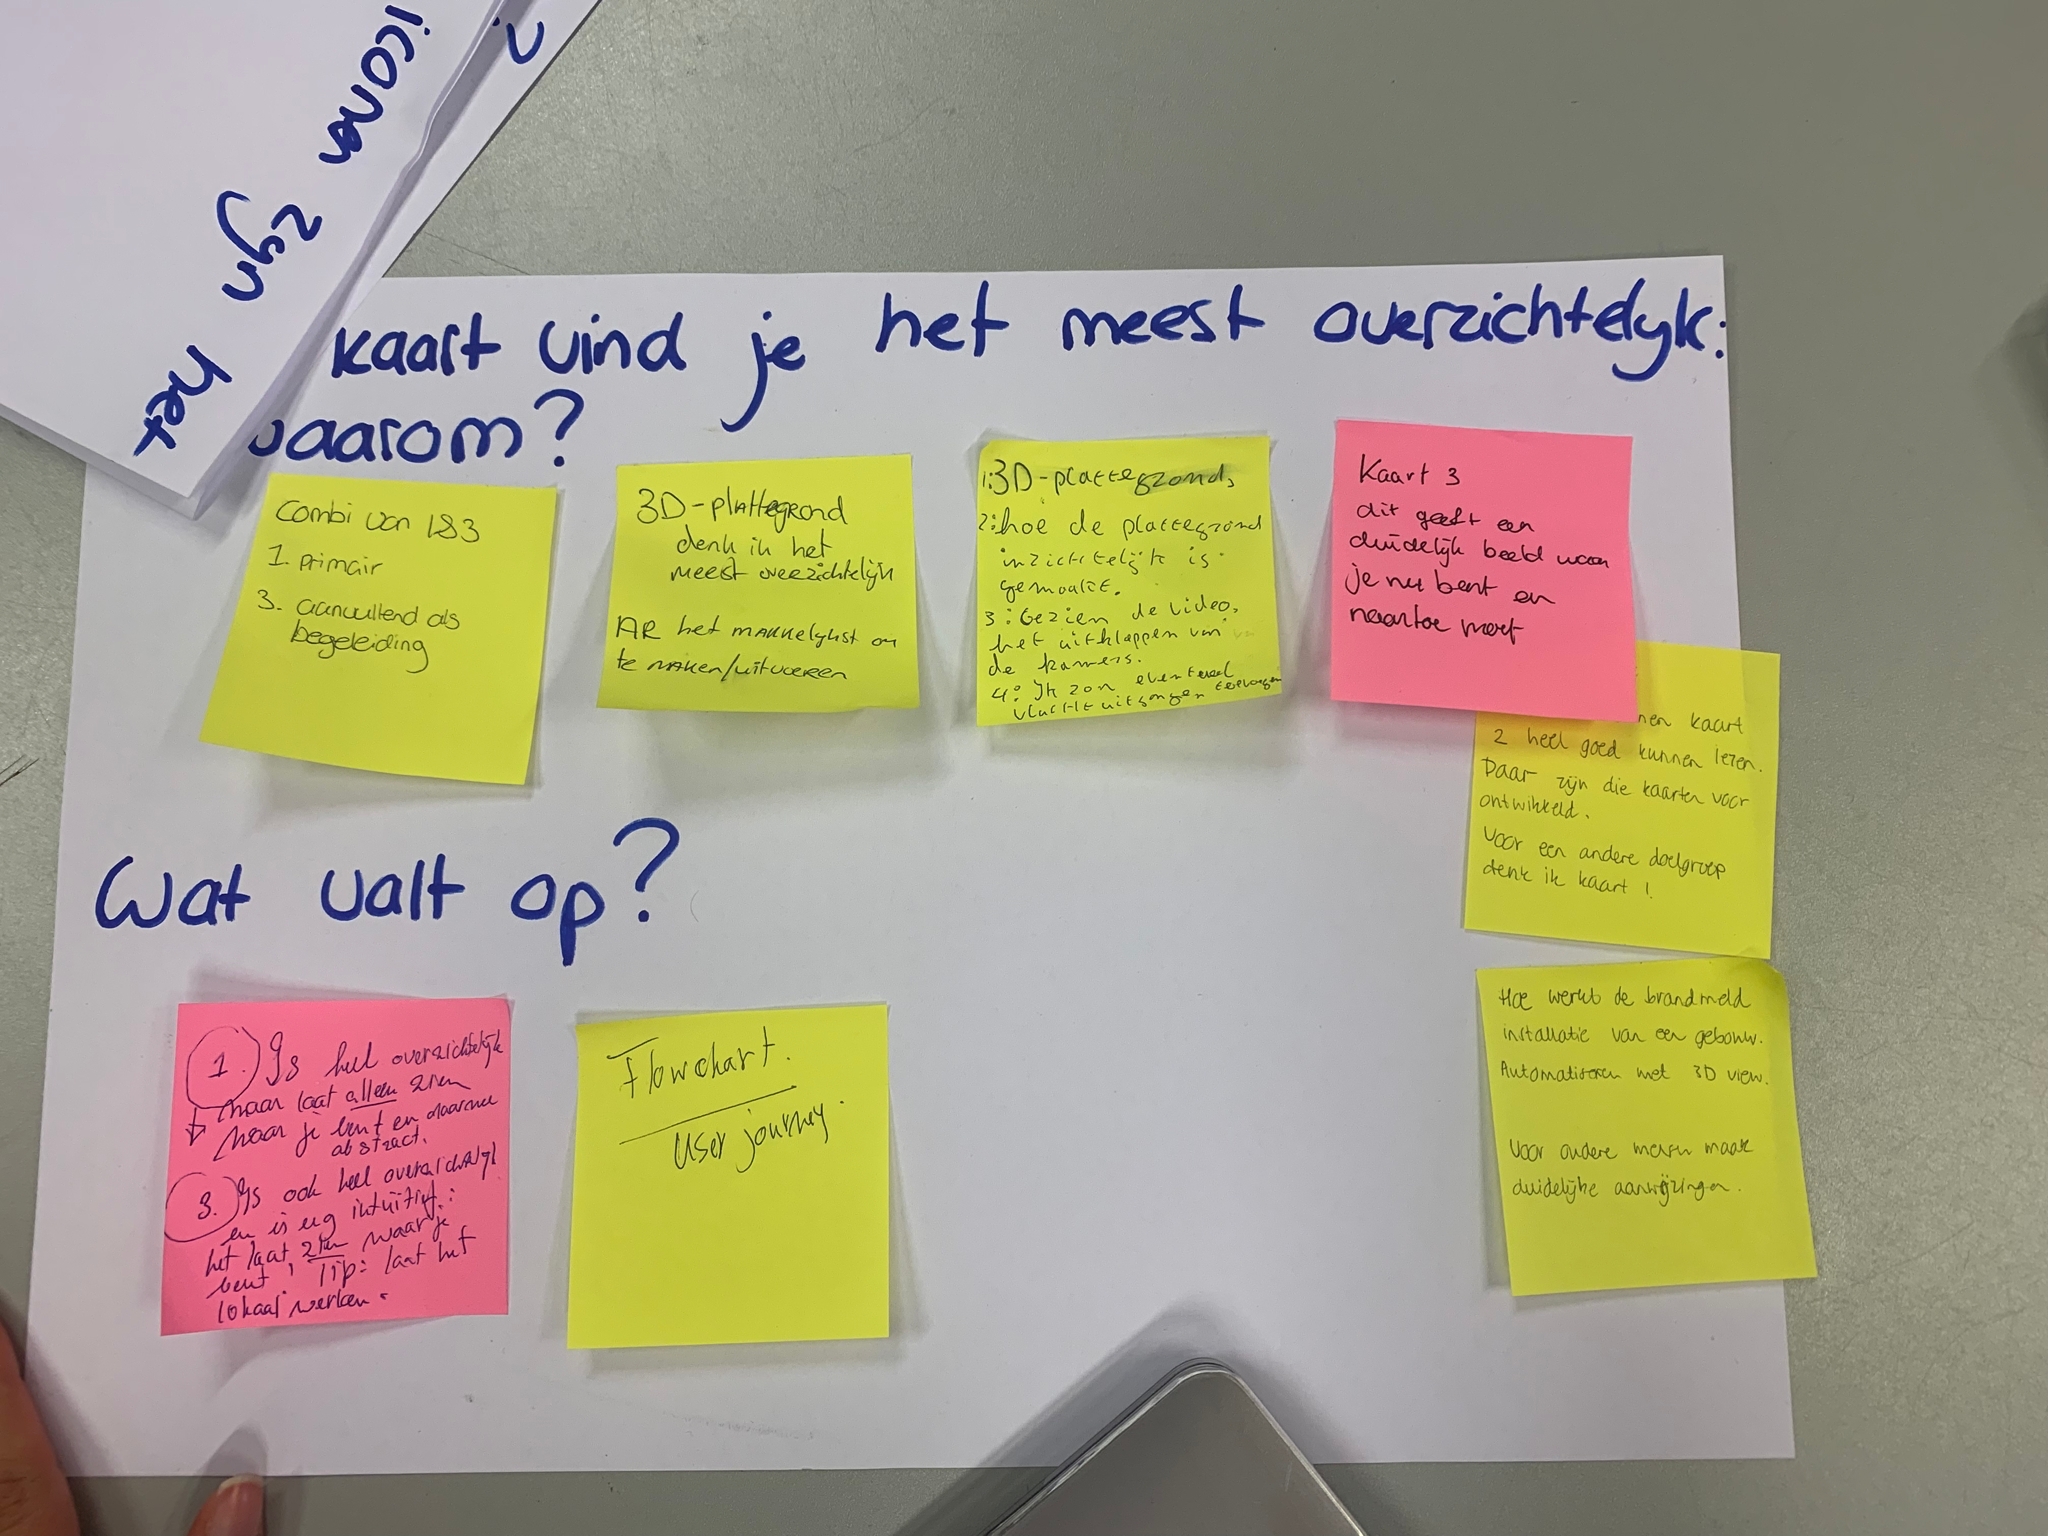 iconen
zijn
het
?
kaart vind je het meest overzichtelyk:
waarom?
Combi van 1&3
1. primair
3. aanvullend als
begeleiding
3D-plattegrond
denk ik het
meest overzichtelijk
AR het makkelijkst om
te maken/uitvoeren
1:3D-plattegrond,
2:hoe de plattegrond
inzichtelijk is
gemaakt.
3: Gezien de video,
het uitklappen van
de kamers.
4: Ik zou eventueel
vluchtuitgangen toevoegen
Kaart 3
dit geeft een
duidelijk beeld waar
je nu bent en
naartoe moet
nen kaart
2 heel goed kunnen lezen.
Daar zijn die kaarten voor
ontwikkeld.
Voor een andere doelgroep
denk ik kaart 1
Wat valt op?
1. Is heel overzichtelijk
maar laat alleen zien
waar je bent en daarmee
abstract.
3. Is ook heel overzichtelijk
en is erg intuïtief:
het laat zien waar je
bent, Tip: laat het
lokaal werken.
Flowchart.
User journey.
Hoe werkt de brandmeld
installatie van een gebouw.
Automatiseren met 3D view.
Voor oudere mensen maak
duidelijke aanwijzingen.